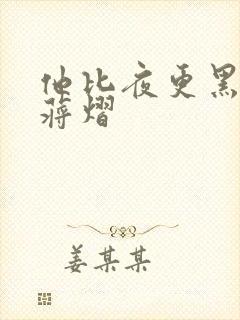 他比夜更黑
蒋熠
姜某某